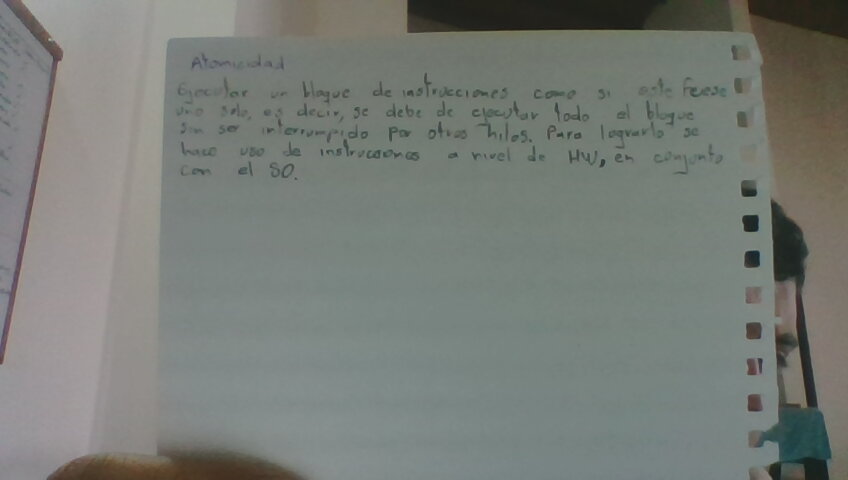 Atomicidad
Ejecutar un bloque de instrucciones como si este fuese
uno solo, es decir, se debe de ejecutar todo el bloque
sin ser interrumpido por otros hilos. Para lograrlo se
hace uso de instrucciones a nivel de HW, en conjunto
con el SO.